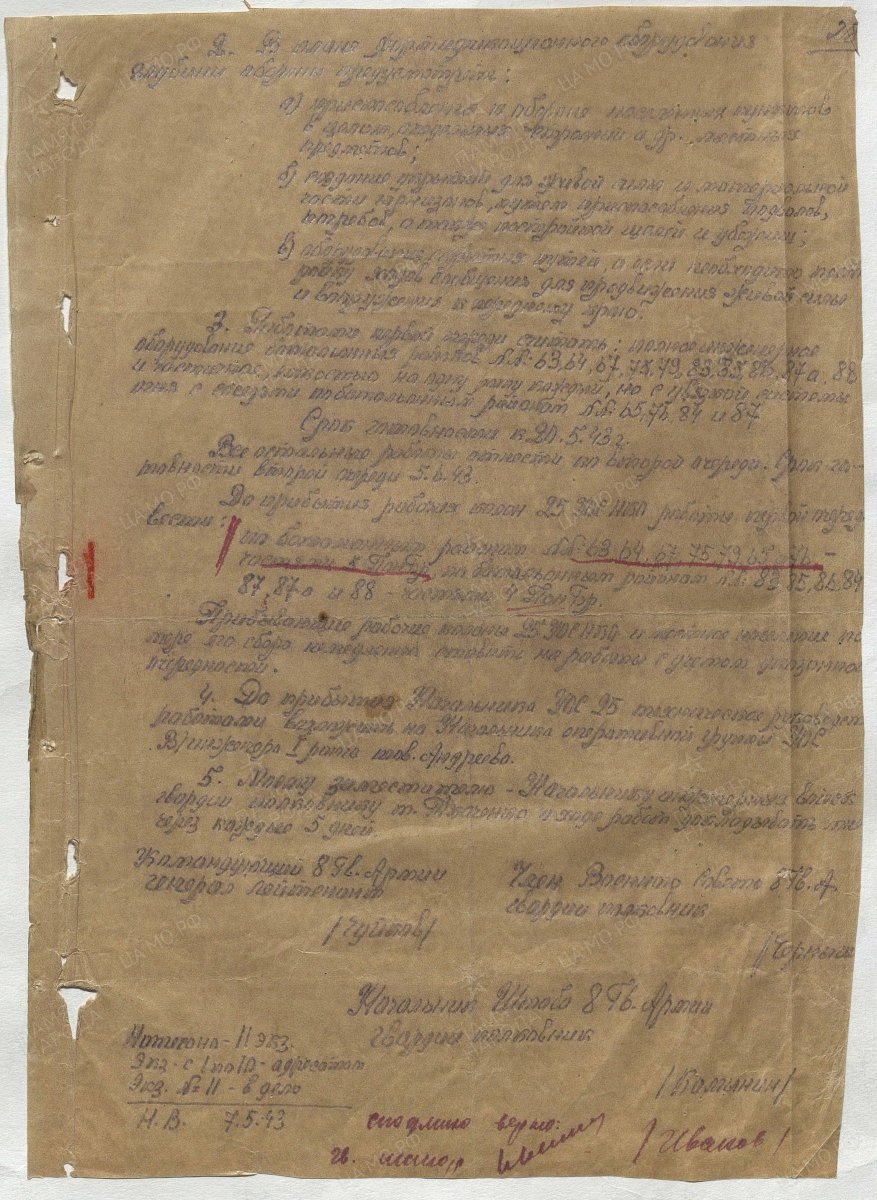 2. В плане фортификационного оборудования
глубины обороны предусмотреть:
а) приспособление к обороне населенных пунктов
в целом, отдельных строений и др. местных
предметов;
б) создание укрытий для живой силы и материальной
части гарнизонов, путем приспособления подвалов,
погребов, а также постройкой щелей и убежищ;
в) укрытия путей, а если необходимо
ходов сообщения для продвижения живой силы
и вооружения к переднему краю.
3. Работами первой очереди считать: полное инженерное
оборудование батальонных районов №№: 63, 64, 67, 75, 79, 83, 85, 86, 87а, 88
и частичное, на одну роту каждый, но с увязкой системы
огня с соседями по батальонным районам №№: 65, 76, 84 и 87
Срок готовности к 20.5.43 г.
Все остальные работы отнести ко второй очереди. Срок го-
товности второй очереди 5.6.43.
До прибытия рабочих колон 25 работы первой очереди
вести:
по батальонным районам №№: 63, 64, 67, 75, 79, 65, 76 -
частями по батальонным районам №№: 83, 85, 86, 84
87, 87а и 88 - частями
Прибывающие рабочие колоны 25 и местное население по
мере его сбора немедленно ставить на работы с учетом указанной
очередности.
4. До прибытия Начальника 25 техническое руководство
работами возложить на Начальника оперативной группы
В/инженера I ранга тов. Андреева.
5. Моему заместителю - Начальнику инженерных войск
гвардии полковнику т. Ткаченко о ходе работ докладывать мне
через каждые 5 дней.
Командующий 8 Гв. Армии
генерал лейтенант
/Чуйков/
Член Военного Совета 8 Гв. А.
гвардии полковник
Начальник Штаба 8 Гв. Армии
гвардии полковник
Напечатано - 11 экз.
Экз. с 1 по 10 - адресатам
Экз. № 11 - в дело
Н. В. 7.5.43
с подлин верно:
гв. майор /Иванов/
ЦАМО.РФ